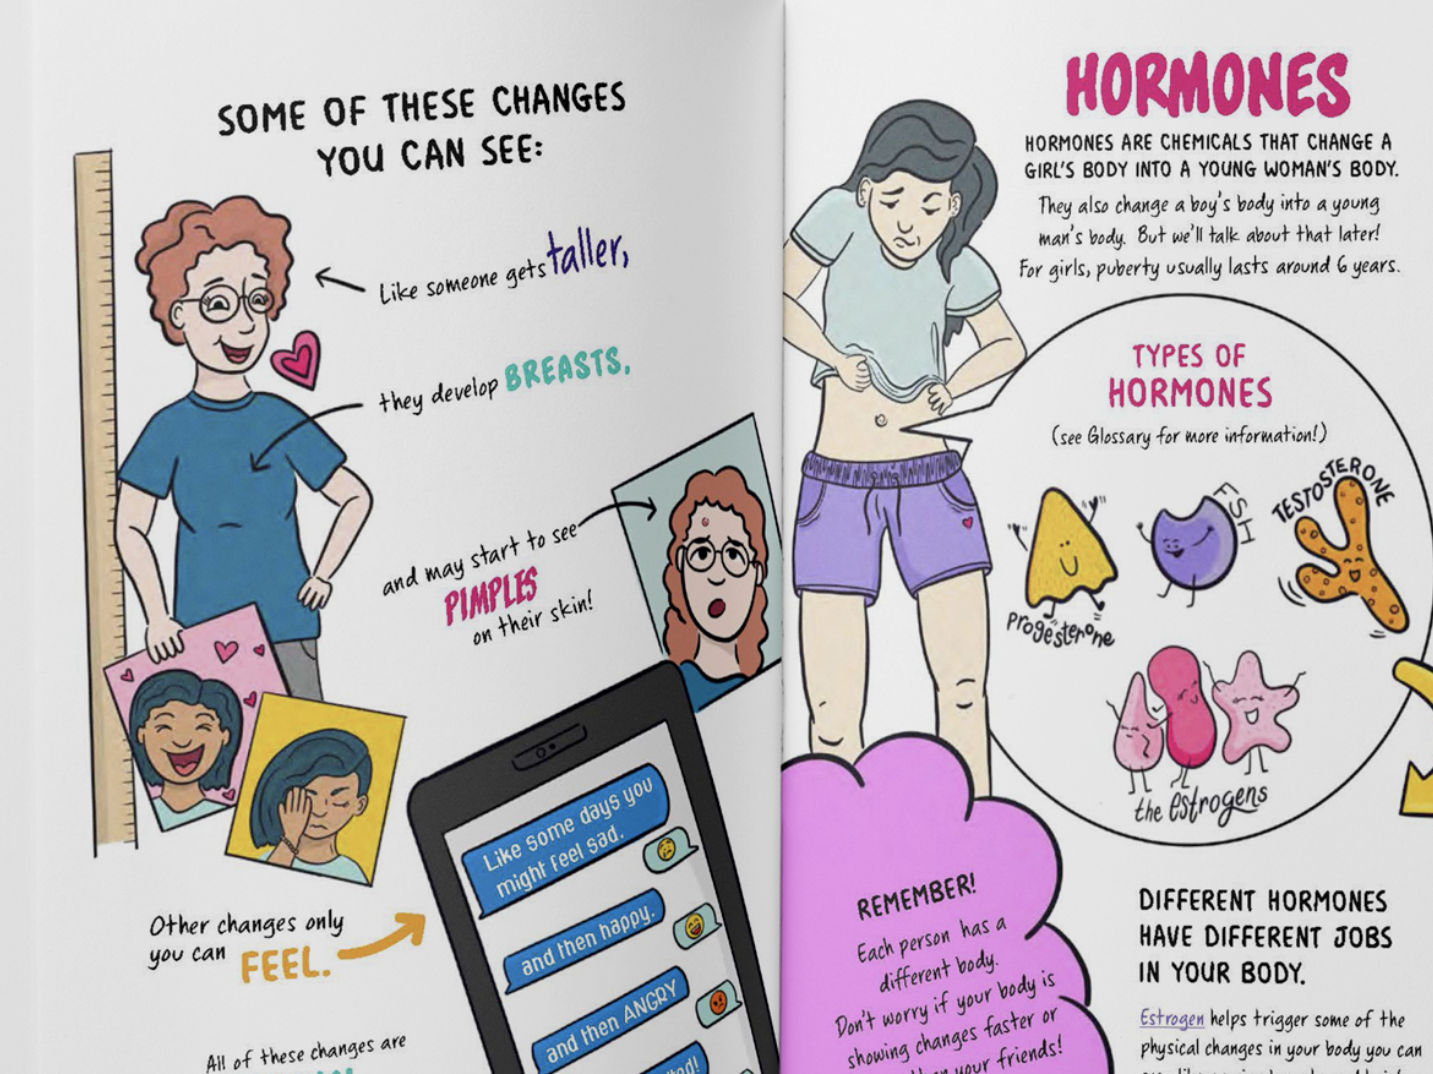 SOME OF THESE CHANGES
YOU CAN SEE:
Like someone gets taller,
they develop BREASTS,
and may start to see
PIMPLES
on their skin!
Other changes only
you can FEEL.
All of these changes are
Like some days you
might feel sad.
and then happy.
and then ANGRY
HORMONES
HORMONES ARE CHEMICALS THAT CHANGE A
GIRL'S BODY INTO A YOUNG WOMAN'S BODY.
They also change a boy's body into a young
man's body. But we'll talk about that later!
For girls, puberty usually lasts around 6 years.
TYPES OF
HORMONES
(see Glossary for more information!)
progesterone
FSH
TESTOSTERONE
the estrogens
REMEMBER!
Each person has a
different body.
Don't worry if your body is
showing changes faster or
your friends!
DIFFERENT HORMONES
HAVE DIFFERENT JOBS
IN YOUR BODY.
Estrogen helps trigger some of the
physical changes in your body you can